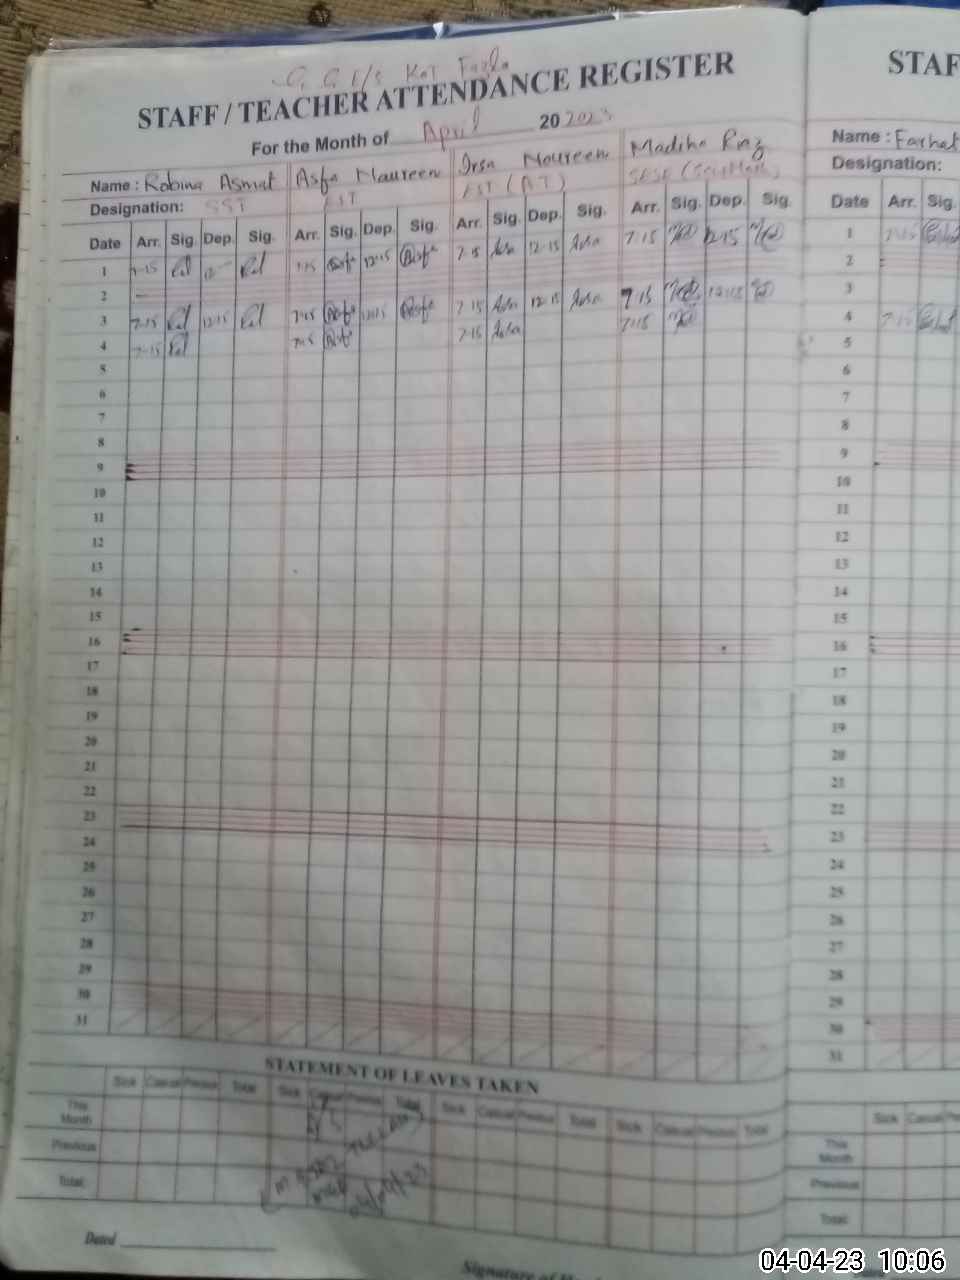 G. G. E/S Kot Fazla
STAFF / TEACHER ATTENDANCE REGISTER
For the Month of April 20 2023
Name : Robina Asmat Asfa Naureen Irsa Naureen Madiha Riaz
Designation: SST EST EST (AT) SESE
Date Arr. Sig. Dep. Sig. Arr. Sig. Dep. Sig. Arr. Sig. Dep. Sig. Arr. Sig. Dep. Sig.
1 7-15 7-15 12-15 7-15 12-15 7-15 12-15
2
3 7-15 12-15 7-15 12-15 7-15 12-15 7-15 12-15
4 7-15 7-15 7-15 7-15
5
6
7
8
9
10
11
12
13
14
15
16
17
18
19
20
21
22
23
24
25
26
27
28
29
30
31
STATEMENT OF LEAVES TAKEN
Sick Casual Previous Total Sick Casual Previous Total Sick Casual Previous Total Sick Casual Previous Total
This Month
Previous
Total:
Dated
Signature of
STAF
Name : Farhat
Designation:
Date Arr. Sig.
1 7-15
2
3
4 7-15
5
6
7
8
9
10
11
12
13
14
15
16
17
18
19
20
21
22
23
24
25
26
27
28
29
30
31
Sick Casual
This Month
Previous
Total:
04-04-23 10:06